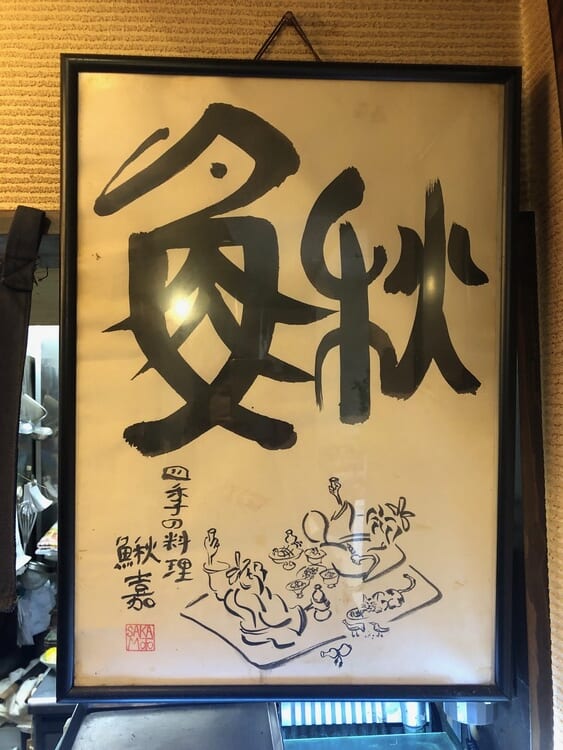 鰍
四季の料理
鰍嘉
SAKA
MOTO